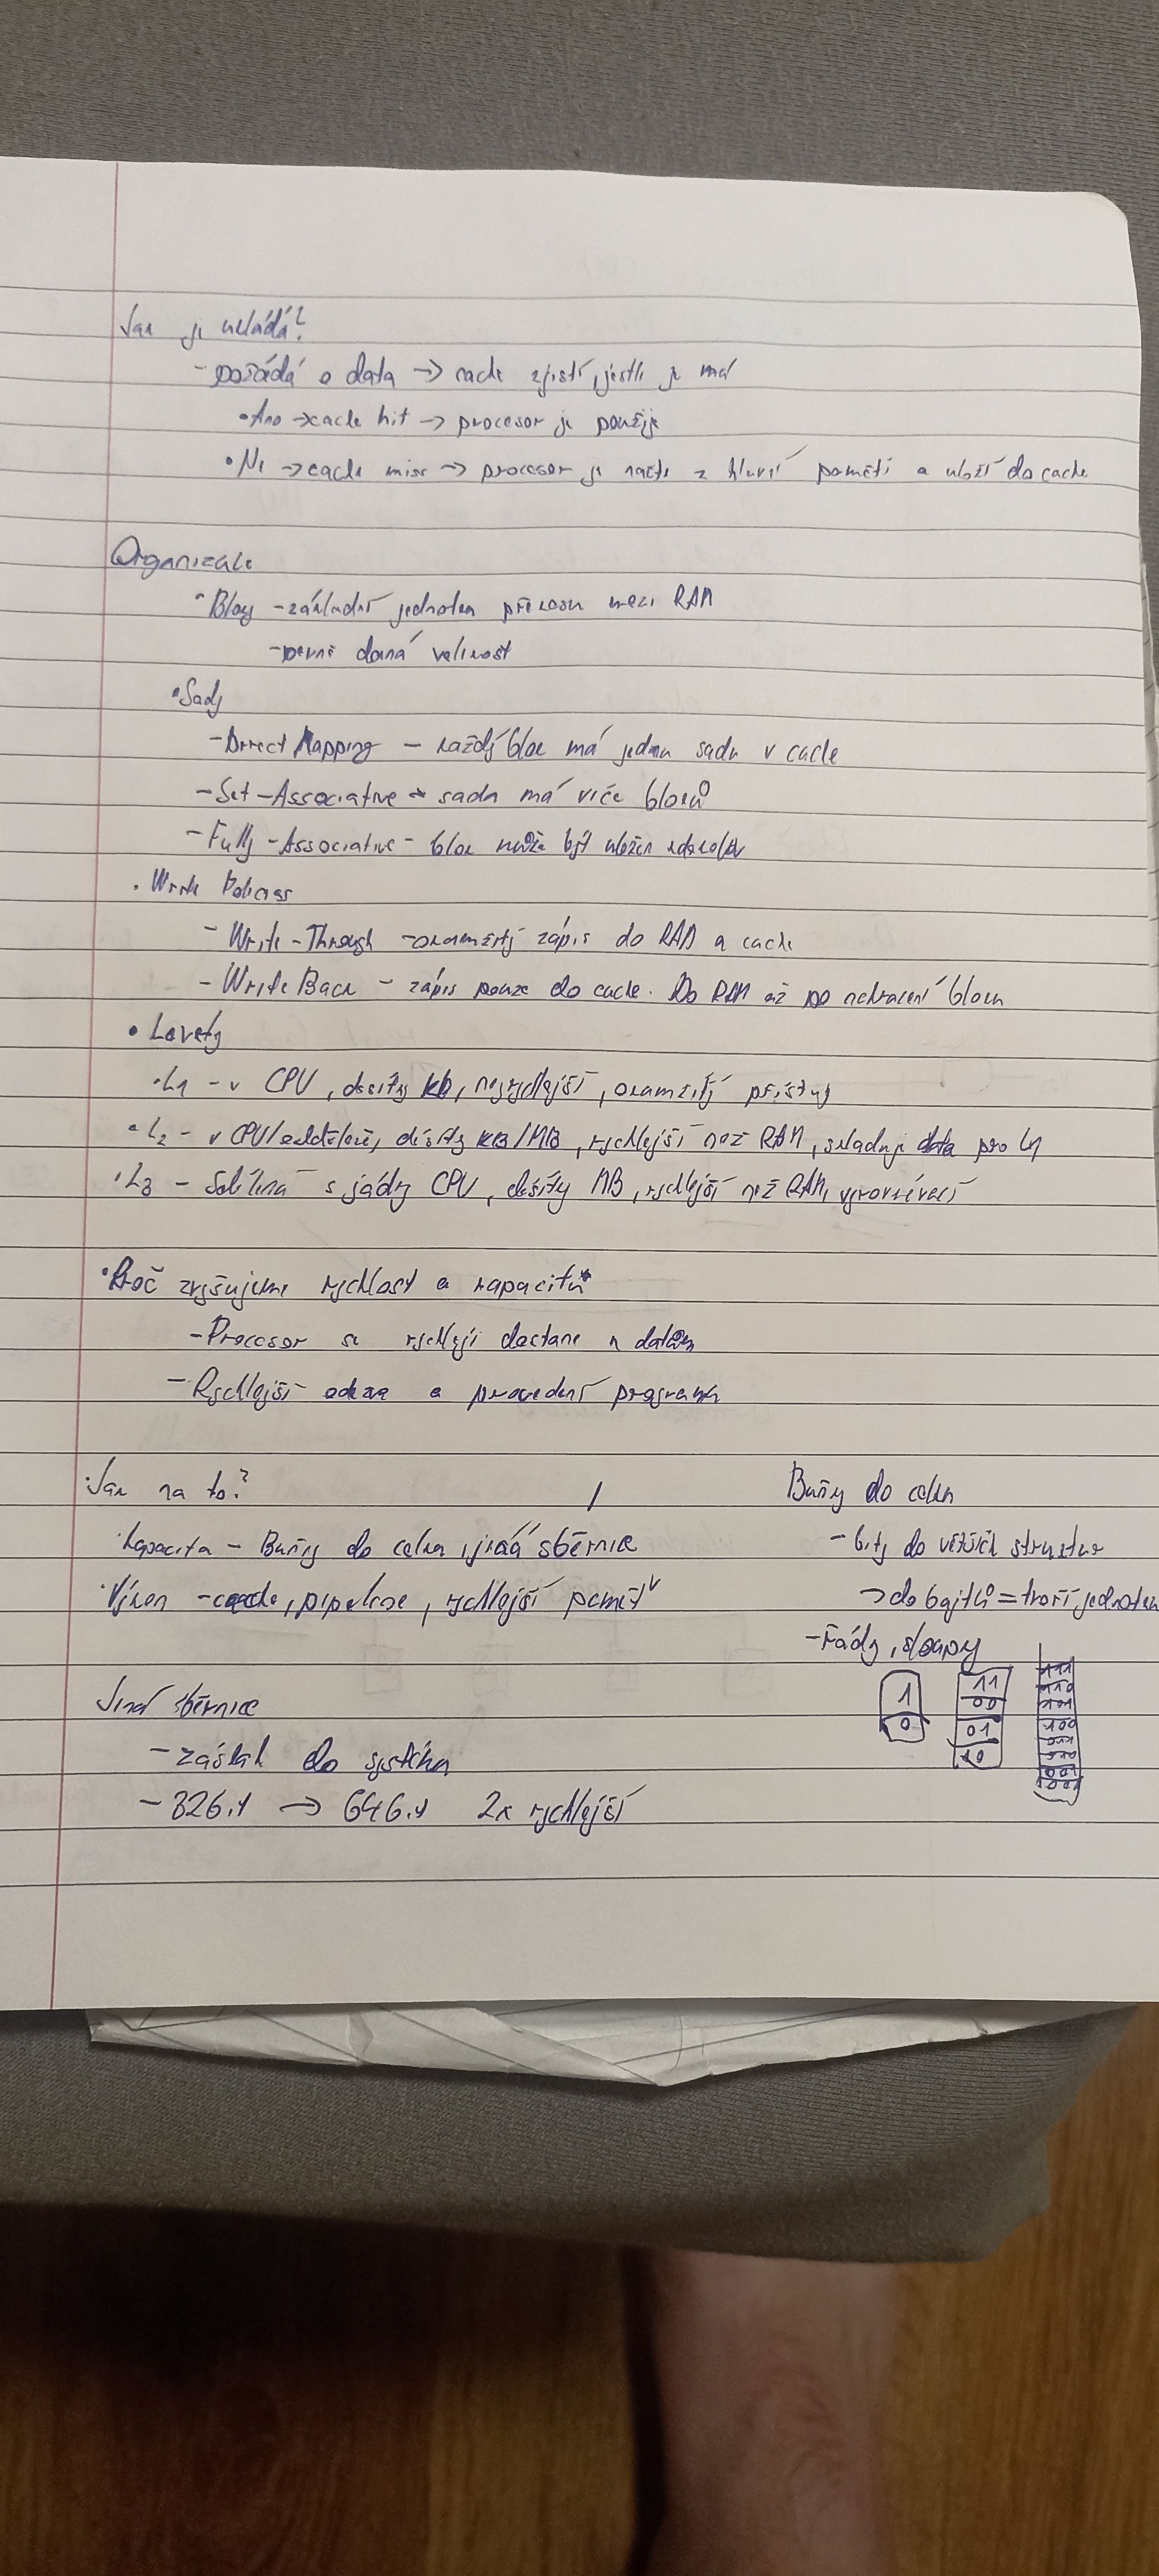 Jak ji ukládá?
- požádá o data -> cache zjistí, jestli je má
• Ano -> cache hit -> procesor je použije
• Ne -> cache miss -> procesor je načte z hlavní paměti a uloží do cache
Organizace
• Bloky - základní jednotka přenosu mezi RAM
- pevně daná velikost
• Sady
- Direct Mapping - každý blok má jednu sadu v cache
- Set-Associative - sada má více bloků
- Fully-Associative - blok může být uložen kdekoliv
• Write Policies
- Write-Through - okamžitý zápis do RAM a cache
- Write Back - zápis pouze do cache. Do RAM až po nahrazení bloku
• Levely
• L1 - v CPU, desítky kB, nejrychlejší, okamžitý přístup
• L2 - v CPU/odděleně, desítky KB/MB, rychlejší než RAM, skladuje data pro L1
• L3 - Sdílená s jádry CPU, desítky MB, rychlejší než RAM, vyrovnávací
• Proč zvyšujeme rychlost a kapacitu
- Procesor se rychleji dostane k datům
- Rychlejší odezva a provedení programu
• Jak na to?
• Kapacita - Buňky do celku, jiná sběrnice
• Výkon - cache, pipeline, rychlejší paměť
Jiná sběrnice
- zásah do systému
- 32bit -> 64bit 2x rychlejší
/
Buňky do celku
- bity do větších struktur
-> do bajtů = tvoří jednotku
- řády, sloupy
1
0
11
00
01
10
111
110
101
100
011
010
001
000